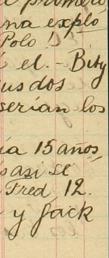 el primero
una explo
Polo
el. - Bity
us dos
serían los
a 15 años
casi se
Fred 12.
y Jack